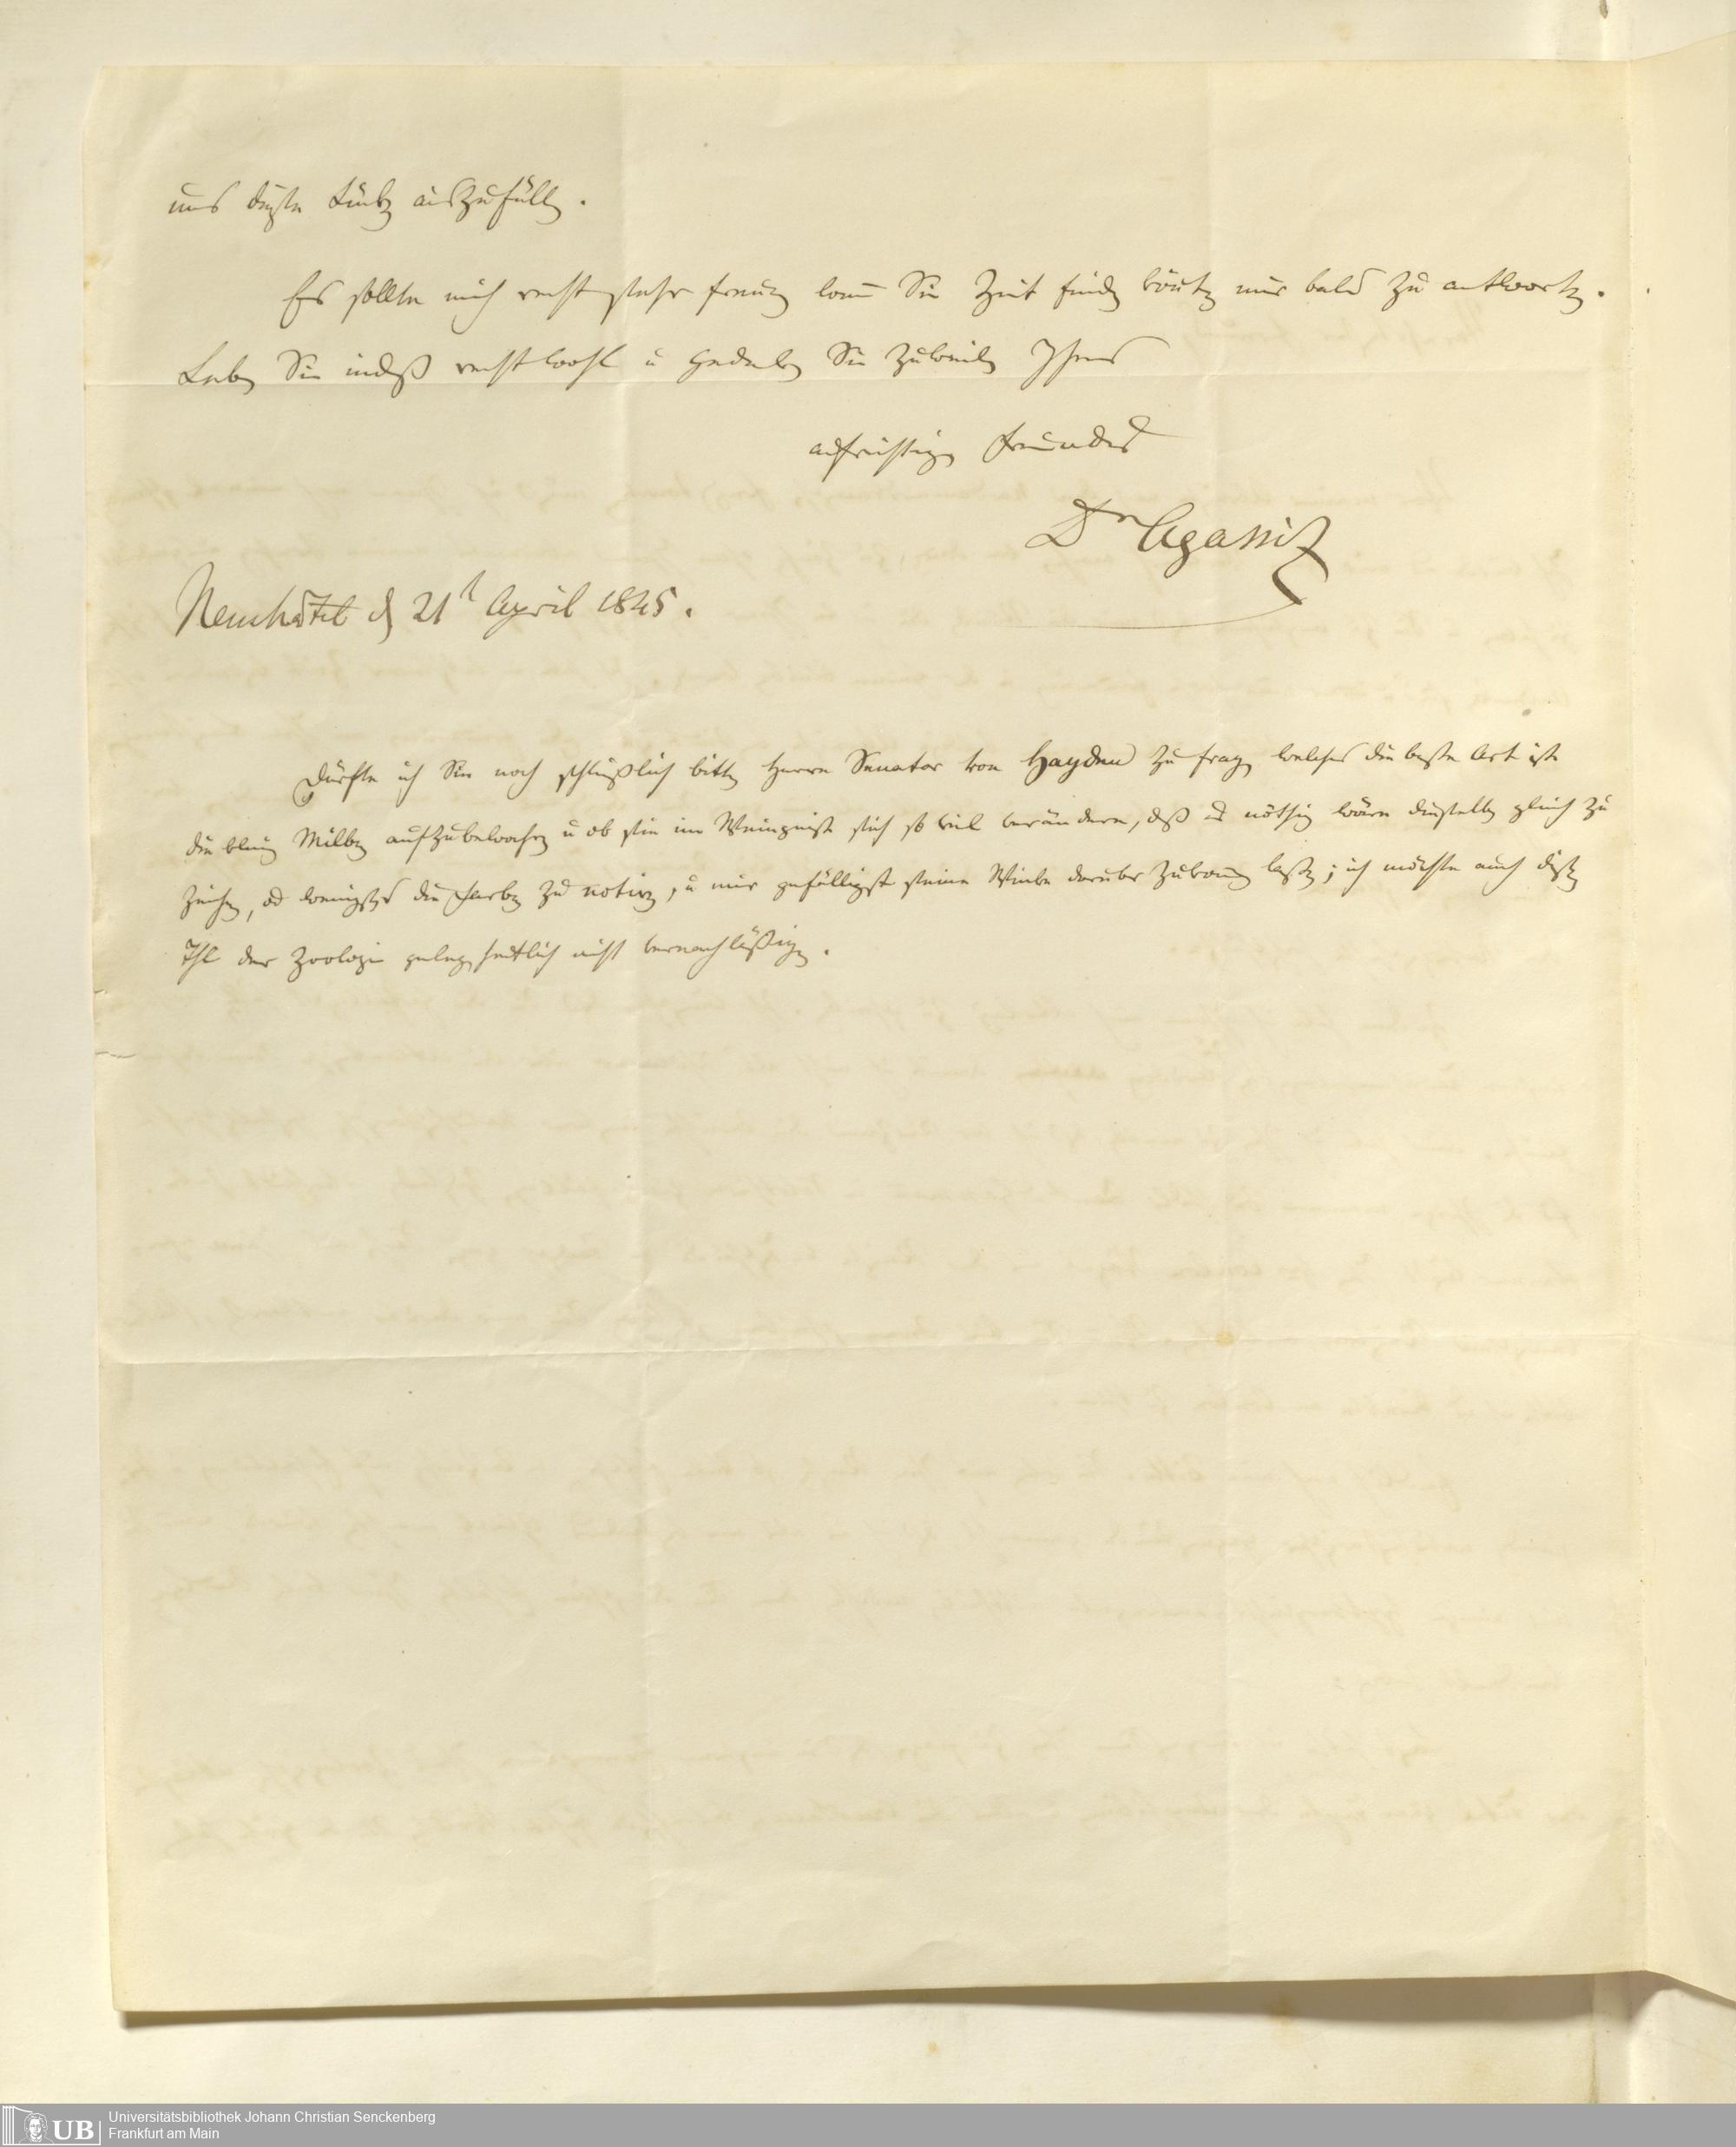 uns diese Lücken auszufüllen.
Es sollte mich recht sehr freuen wenn Sie Zeit finden könnten mir bald zu antworten.
Leben Sie indeß recht wohl u gedenken Sie zuweilen Ihres
aufrichtigen Freundes
Dr Agassiz
Neuchâtel d 21t April 1845.
Dürfte ich Sie noch schließlich bitten Herrn Senator von Hayden zu fragen welches die beste Art ist
die Milben aufzubewahren u ob sie im Weingeist sich so viel verändern, daß es nöthig wäre dieselben gleich zu
zeichnen, od wenigstens die Farben zu notiren, u mir gefälligst seine Winke darüber zukommen lassen; ich möchte auch diesen
Theil der Zoologie gelegentlich nicht vernachläßigen.
UB Universitätsbibliothek Johann Christian Senckenberg
Frankfurt am Main